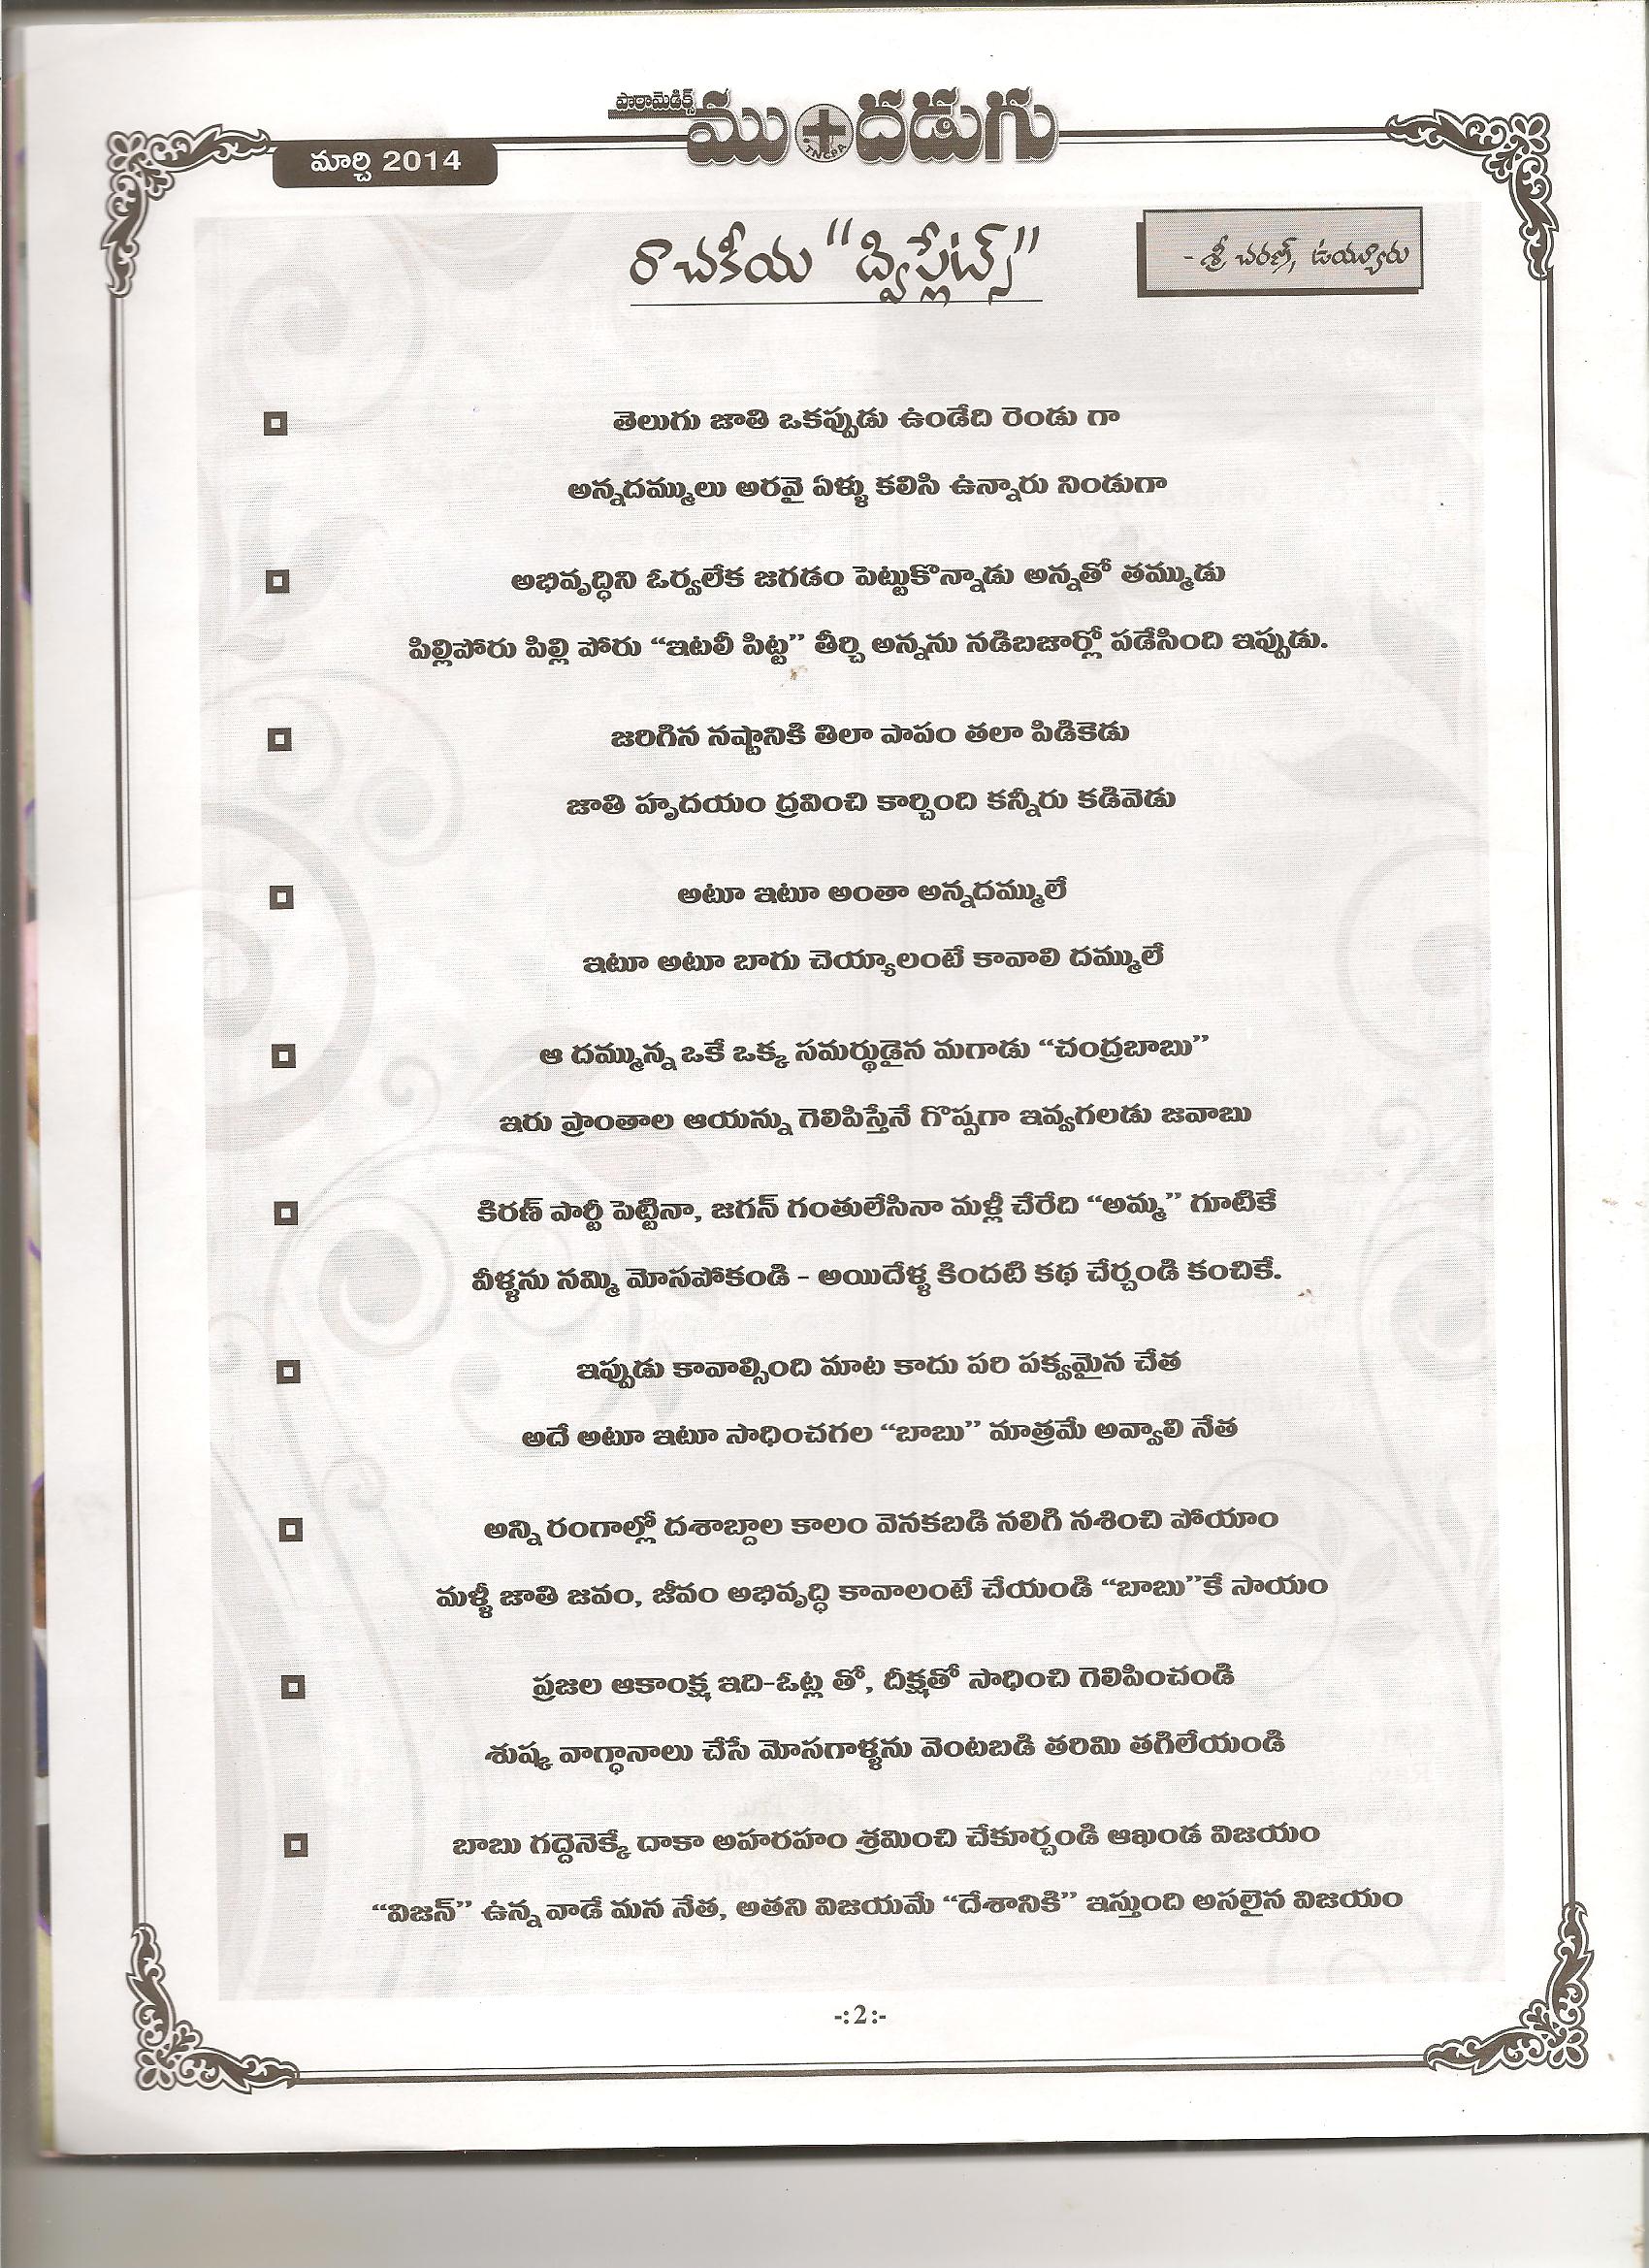 పారామెడిక్స్
ముందడుగు
TNCPA
మార్చి 2014
రాచకీయ "ద్విప్లేట్స్"
- శ్రీ చరణ్, ఉయ్యూరు
తెలుగు జాతి ఒకప్పుడు ఉండేది రెండు గా
అన్నదమ్ములు అరవై ఏళ్ళు కలిసి ఉన్నారు నిండుగా
అభివృద్ధిని ఓర్వలేక జగడం పెట్టుకొన్నాడు అన్నతో తమ్ముడు
పిల్లిపోరు పిల్లి పోరు "ఇటలీ పిట్ట" తీర్చి అన్నను నడిబజార్లో పడేసింది ఇప్పుడు.
జరిగిన నష్టానికి తిలా పాపం తలా పిడికెడు
జాతి హృదయం ద్రవించి కార్చింది కన్నీరు కడివెడు
అటూ ఇటూ అంతా అన్నదమ్ములే
ఇటూ అటూ బాగు చెయ్యాలంటే కావాలి దమ్ములే
ఆ దమ్మున్న ఒకే ఒక్క సమర్థుడైన మగాడు "చంద్రబాబు"
ఇరు ప్రాంతాల ఆయన్ను గెలిపిస్తేనే గొప్పగా ఇవ్వగలడు జవాబు
కిరణ్ పార్టీ పెట్టినా, జగన్ గంతులేసినా మళ్లీ చేరేది "అమ్మ" గూటికే
వీళ్ళను నమ్మి మోసపోకండి - అయిదేళ్ళ కిందటి కథ చేర్చండి కంచికే.
ఇప్పుడు కావాల్సింది మాట కాదు పరి పక్వమైన చేత
అదే అటూ ఇటూ సాధించగల "బాబు" మాత్రమే అవ్వాలి నేత
అన్ని రంగాల్లో దశాబ్దాల కాలం వెనకబడి నలిగి నశించి పోయాం
మళ్ళీ జాతి జవం, జీవం అభివృద్ధి కావాలంటే చేయండి "బాబు"కే సాయం
ప్రజల ఆకాంక్ష ఇది-ఓట్ల తో, దీక్షతో సాధించి గెలిపించండి
శుష్క వాగ్ధానాలు చేసే మోసగాళ్ళను వెంటబడి తరిమి తగిలేయండి
బాబు గద్దెనెక్కే దాకా అహరహం శ్రమించి చేకూర్చండి ఆఖండ విజయం
"విజన్" ఉన్న వాడే మన నేత, అతని విజయమే "దేశానికి" ఇస్తుంది అసలైన విజయం
-:2:-